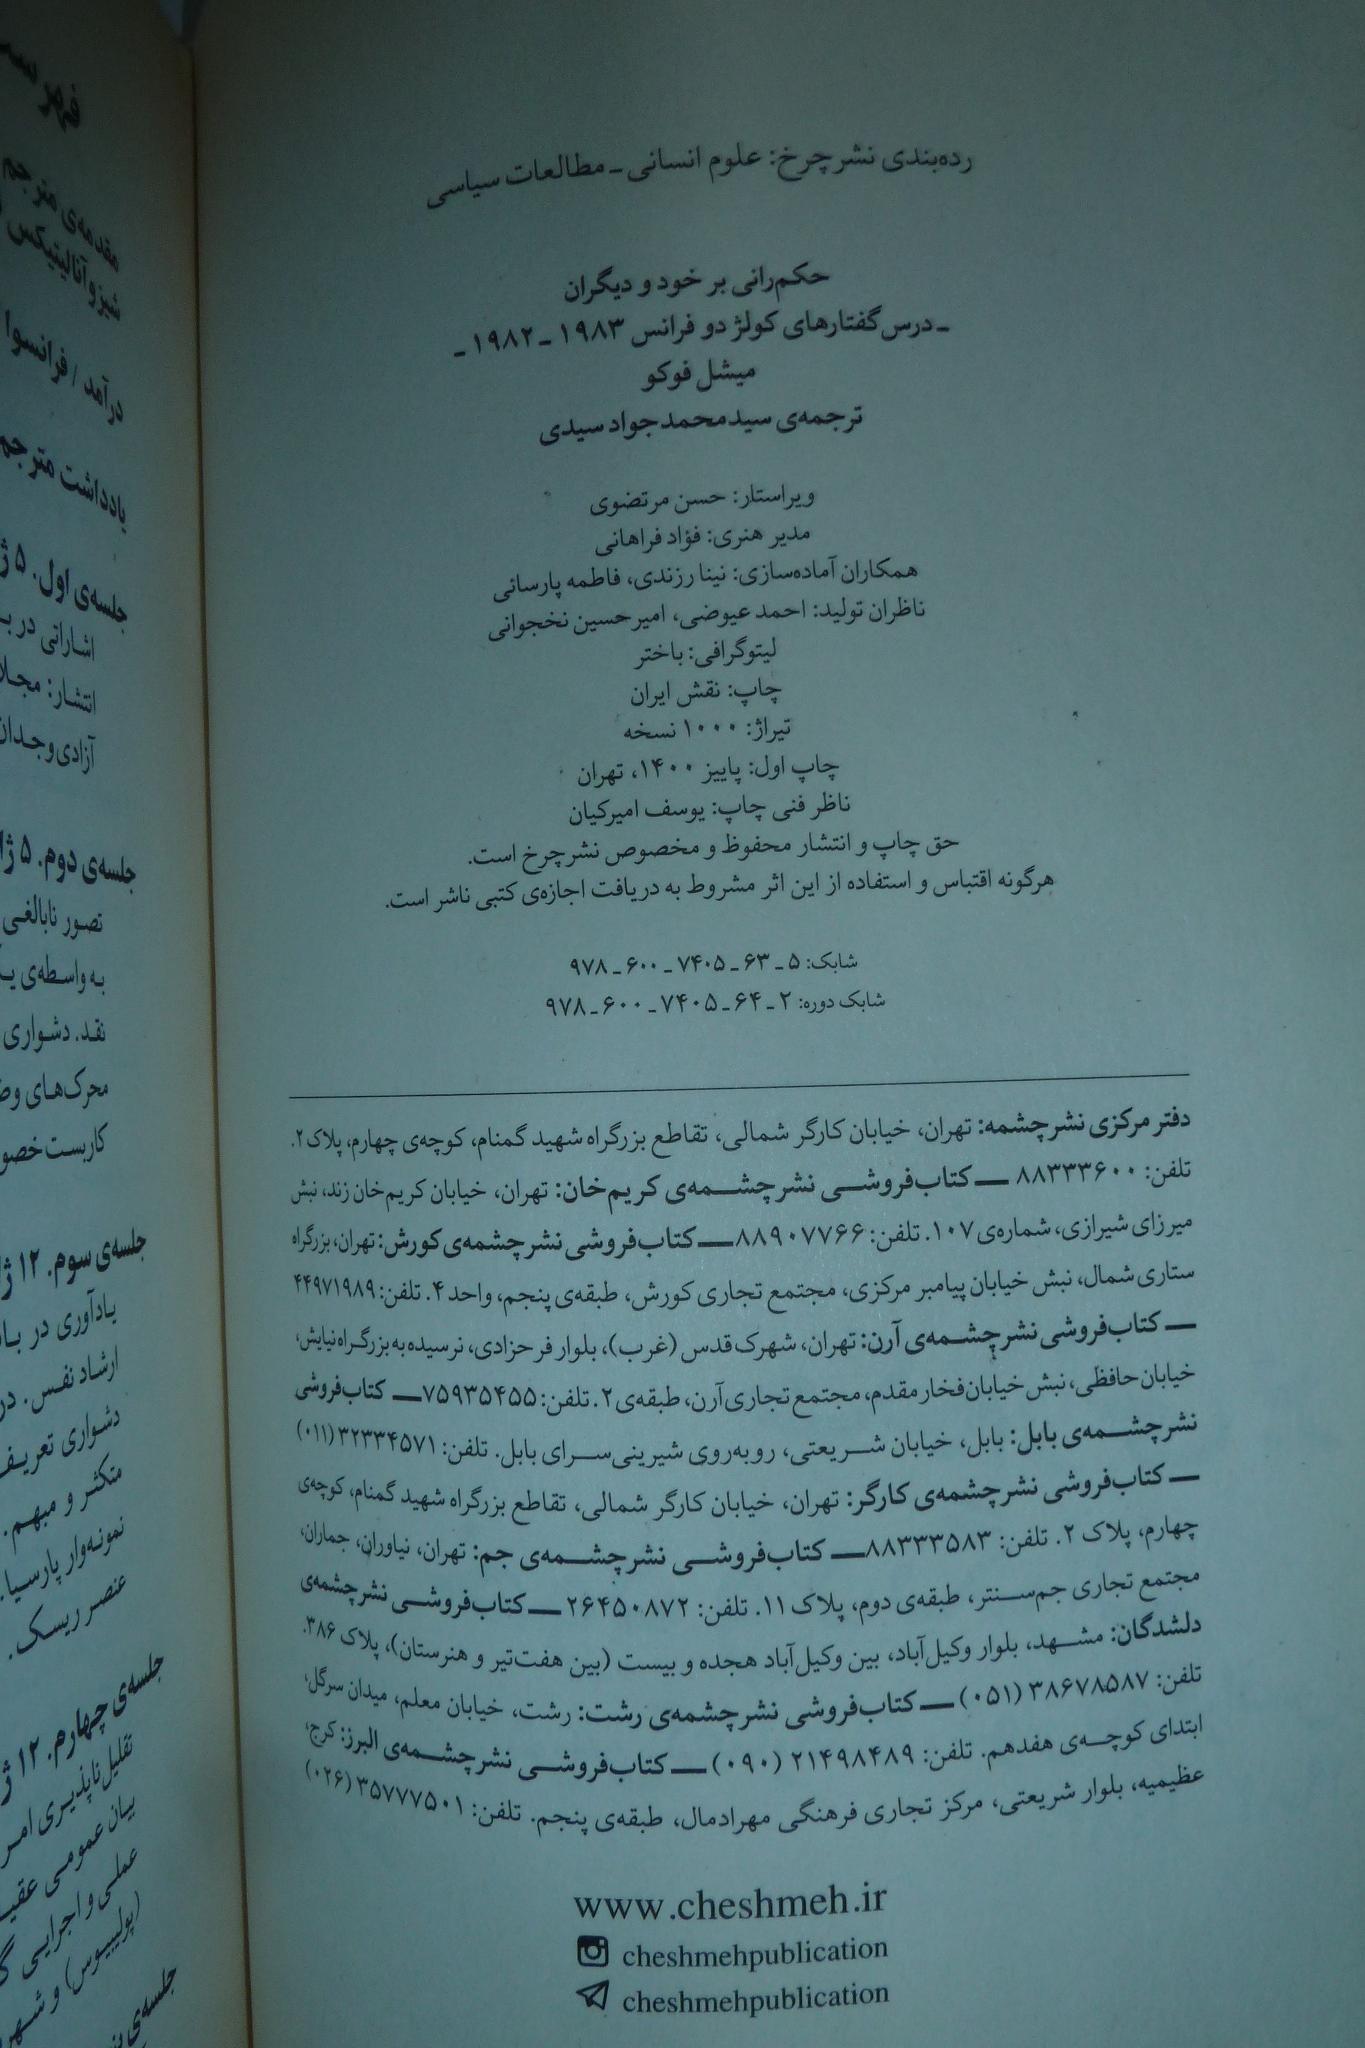 رده‌بندی نشر چرخ: علوم انسانی ـ مطالعات سیاسی
حکم‌رانی بر خود و دیگران
ـ درس‌گفتارهای کولژ دو فرانس ۱۹۸۳ ـ ۱۹۸۲ ـ
میشل فوکو
ترجمه‌ی سیدمحمدجواد سیدی
ویراستار: حسن مرتضوی
مدیر هنری: فؤاد فراهانی
همکاران آماده‌سازی: نینا رزندی، فاطمه پارسائی
ناظران تولید: احمد عیوضی، امیرحسین نخجوانی
لیتوگرافی: باختر
چاپ: نقش ایران
تیراژ: ۱۰۰۰ نسخه
چاپ اول: پاییز ۱۴۰۰، تهران
ناظر فنی چاپ: یوسف امیرکیان
حق چاپ و انتشار محفوظ و مخصوص نشر چرخ است.
هرگونه اقتباس و استفاده از این اثر مشروط به دریافت اجازه‌ی کتبی ناشر است.
شابک: ۵ ـ ۶۳ ـ ۷۴۰۵ ـ ۶۰۰ ـ ۹۷۸
شابک دوره: ۲ ـ ۶۴ ـ ۷۴۰۵ ـ ۶۰۰ ـ ۹۷۸
دفتر مرکزی نشر چشمه: تهران، خیابان کارگر شمالی، تقاطع بزرگراه شهید گمنام، کوچه‌ی چهارم، پلاک ۲.
تلفن: ۸۸۳۳۳۶۰۰ ـــ کتاب‌فروشی نشر چشمه‌ی کریم‌خان: تهران، خیابان کریم‌خان زند، نبش
میرزای شیرازی، شماره‌ی ۱۰۷. تلفن: ۸۸۹۰۷۷۶۶ ـــ کتاب‌فروشی نشر چشمه‌ی کورش: تهران، بزرگراه
ستاری شمال، نبش خیابان پیامبر مرکزی، مجتمع تجاری کورش، طبقه‌ی پنجم، واحد ۴. تلفن: ۴۴۹۷۱۹۸۹
ـــ کتاب‌فروشی نشر چشمه‌ی آرن: تهران، شهرک قدس (غرب)، بلوار فرحزادی، نرسیده به بزرگراه نیایش،
خیابان حافظی، نبش خیابان فخار مقدم، مجتمع تجاری آرن، طبقه‌ی ۲. تلفن: ۷۵۹۳۵۴۵۵ ـــ کتاب‌فروشی
نشر چشمه‌ی بابل: بابل، خیابان شریعتی، روبه‌روی شیرینی‌سرای بابل. تلفن: ۳۲۳۳۴۵۷۱ (۰۱۱)
ـــ کتاب‌فروشی نشر چشمه‌ی کارگر: تهران، خیابان کارگر شمالی، تقاطع بزرگراه شهید گمنام، کوچه‌ی
چهارم، پلاک ۲. تلفن: ۸۸۳۳۳۵۸۳ ـــ کتاب‌فروشی نشر چشمه‌ی جم: تهران، نیاوران، جماران،
مجتمع تجاری جم‌سنتر، طبقه‌ی دوم، پلاک ۱۱. تلفن: ۲۶۴۵۰۸۷۲ ـــ کتاب‌فروشی نشر چشمه‌ی
دلشدگان: مشهد، بلوار وکیل‌آباد، بین وکیل‌آباد هجده و بیست (بین هفت‌تیر و هنرستان)، پلاک ۳۸۶.
تلفن: ۳۸۶۷۸۵۸۷ (۰۵۱) ـــ کتاب‌فروشی نشر چشمه‌ی رشت: رشت، خیابان معلم، میدان سرگل،
ابتدای کوچه‌ی هفدهم. تلفن: ۲۱۴۹۸۴۸۹ (۰۹۰) ـــ کتاب‌فروشی نشر چشمه‌ی البرز: کرج،
عظیمیه، بلوار شریعتی، مرکز تجاری فرهنگی مهرادمال، طبقه‌ی پنجم. تلفن: ۳۵۷۷۷۵۰۱ (۰۲۶)
www.cheshmeh.ir
cheshmehpublication
cheshmehpublication
مقدمه‌ی مترجم
شیزوآنالیتیکس
درآمد / فرانسوا
یادداشت مترجم
جلسه‌ی اول. ۵
اشاراتی در
انتشار:
آزادی وجدان
جلسه‌ی دوم. ۵
تصور نابالغی
به واسطه‌ی
نقد. دشواری
محرک‌های
کاربست
جلسه‌ی سوم. ۱۲
یادآوری در
ارشاد نفس. در
دشواری تعریف
متکثر و مبهم.
نمونه‌وار پارسیا.
عنصر ریسک.
جلسه‌ی چهارم. ۱۲
تقلیل‌ناپذیری امر
بیان عمومی
عملی و اجرایی
(پولیبیوس) و
جلسه‌ی